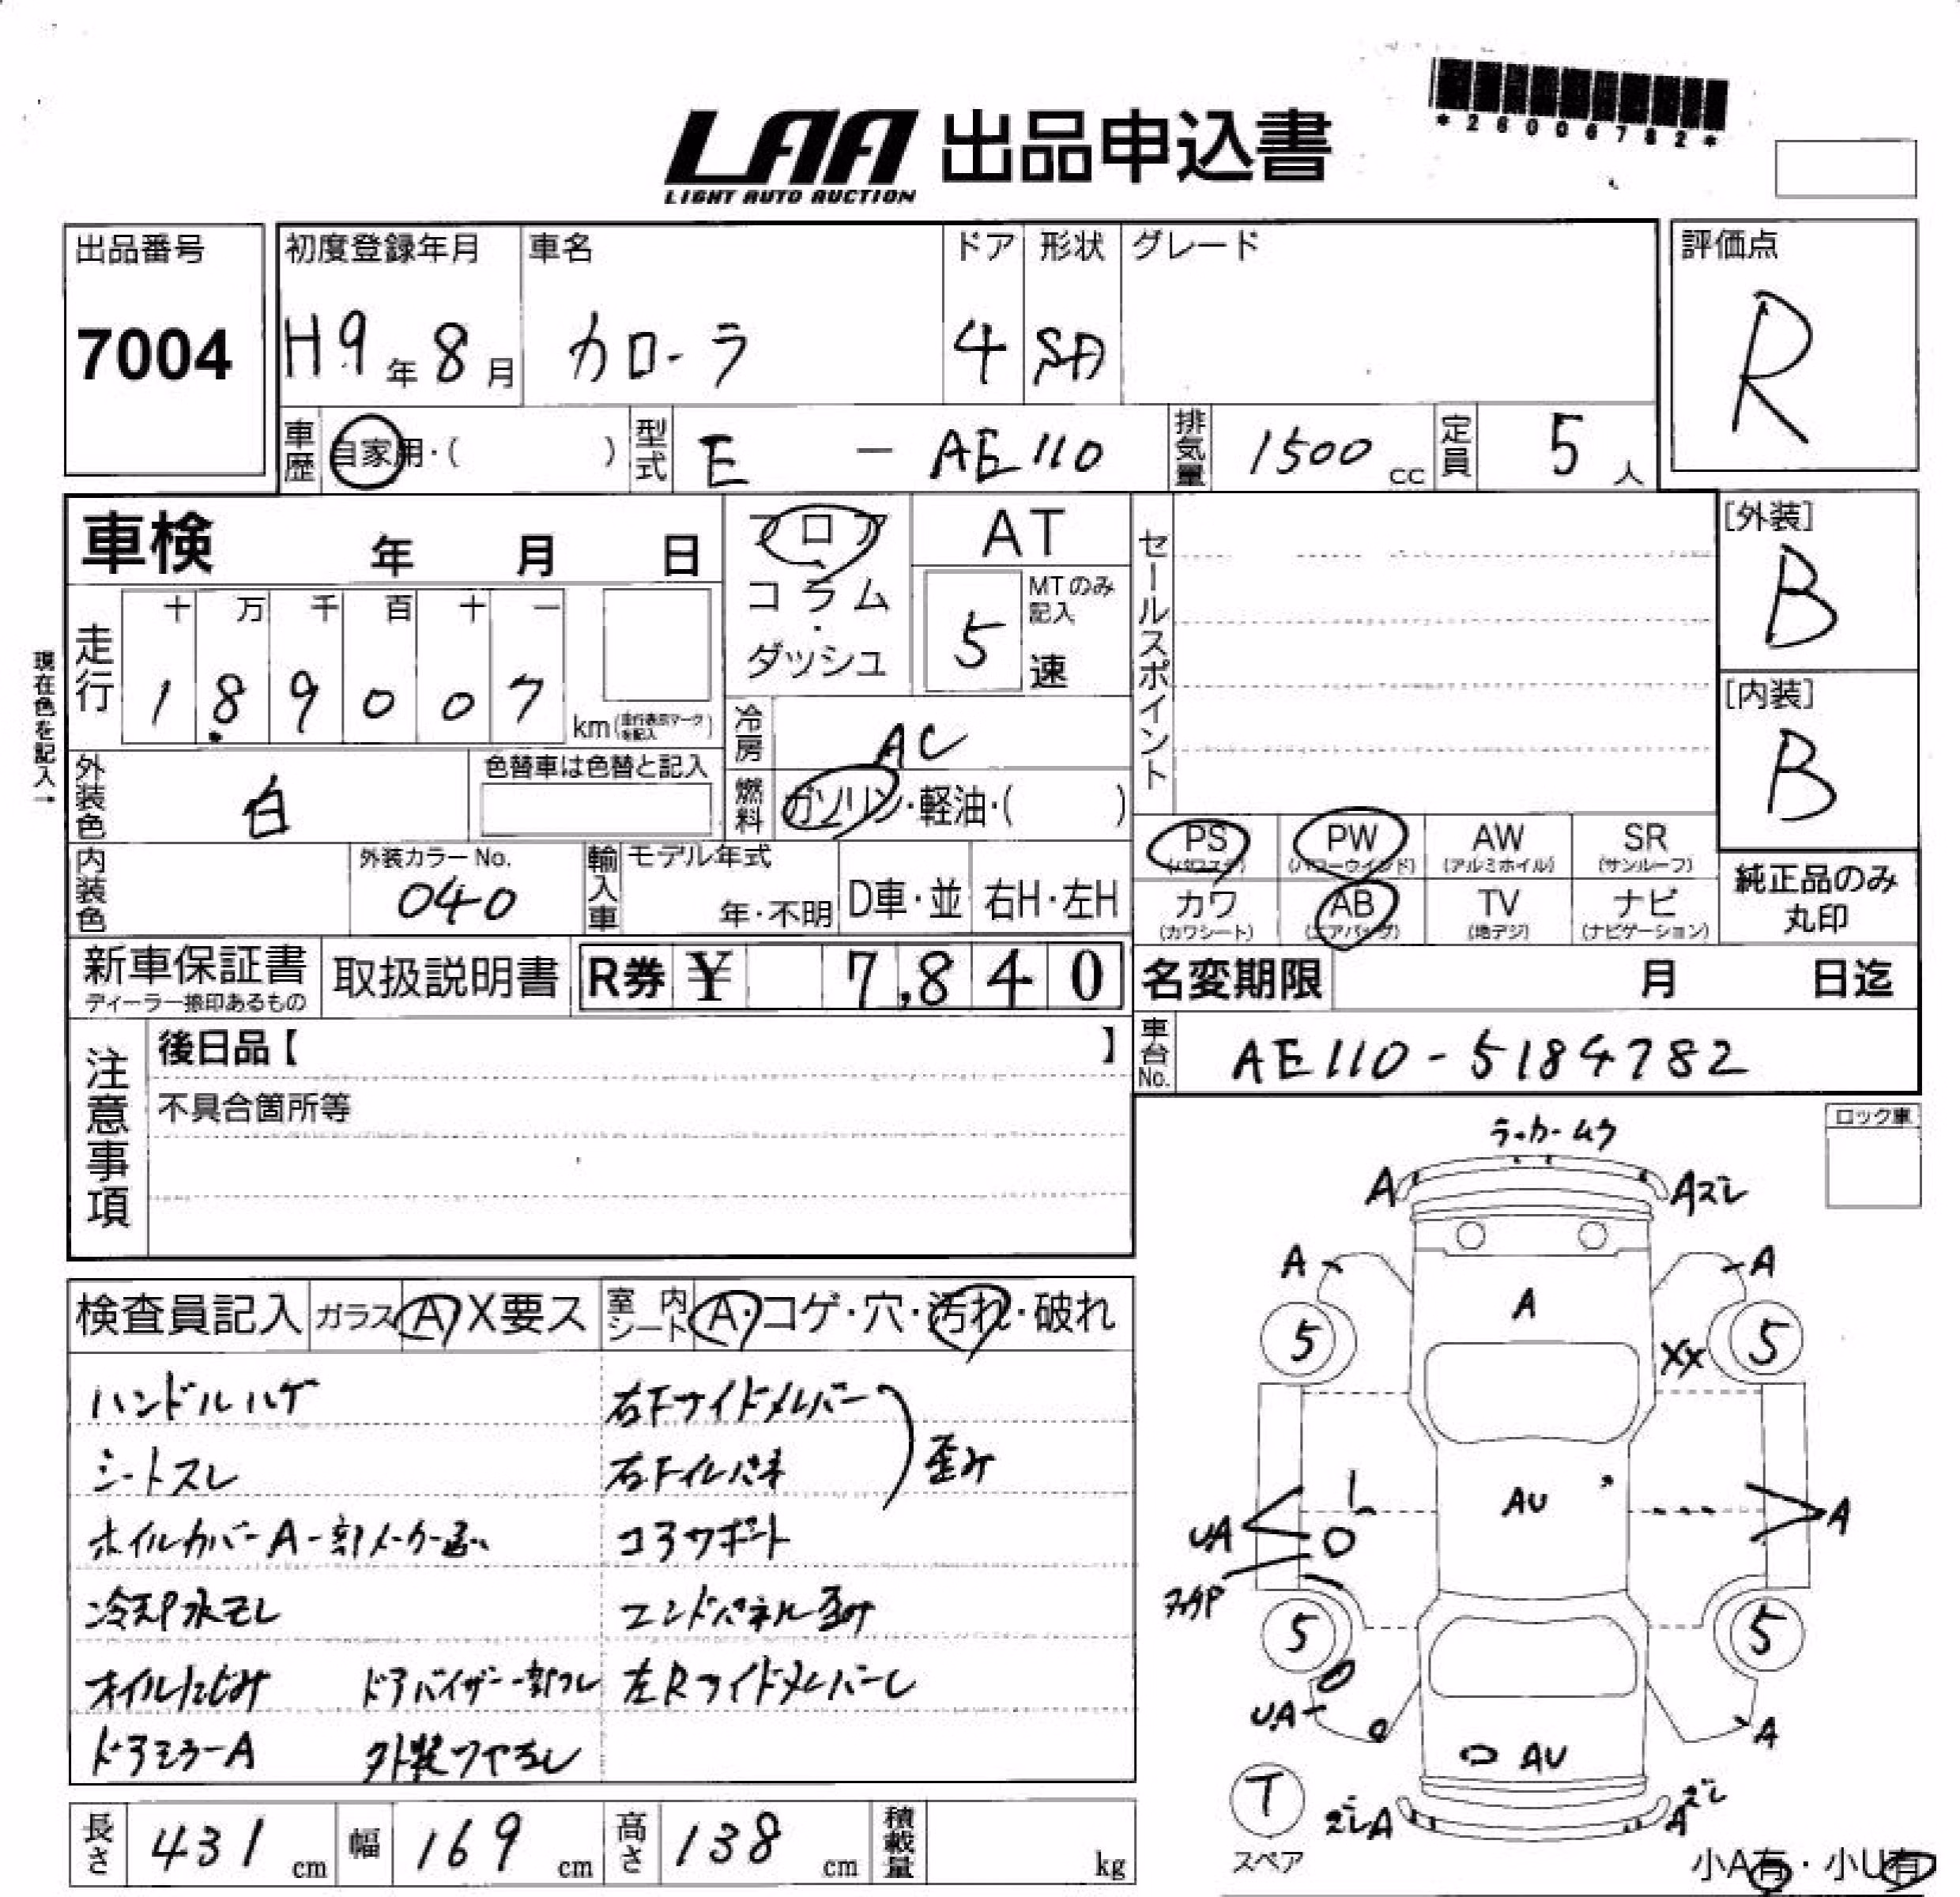 *26006782*
LAA 出品申込書
LIGHT AUTO AUCTION
出品番号
7004
初度登録年月 車名 ドア 形状 グレード
H9年8月 カローラ 4 SD
評価点
R
車歴 自家用・( ) 型式 E - AE110 排気量 1500cc 定員 5人
車検 年 月 日
フロア
コラム
・
ダッシュ
AT
5
MTのみ記入
速
セールスポイント
[外装]
B
[内装]
B
現在色を記入→
走行 十 万 千 百 十 一
1 8 9 0 0 7 km (走行表示マークを記入)
冷房 AC
燃料 ガソリン・軽油・( )
外装色 白
色替車は色替と記入
内装色
外装カラーNo.
040
輸入車
モデル年式
年・不明
D車・並 右H・左H
PS (パワステ) PW (パワーウインド) AW (アルミホイル) SR (サンルーフ)
カワ (カワシート) AB (エアバッグ) TV (地デジ) ナビ (ナビゲーション)
純正品のみ
丸印
新車保証書
ディーラー捺印あるもの
取扱説明書
R券 ¥ 7,840
名変期限 月 日迄
車台No. AE110-5184782
注意事項
後日品【 】
不具合箇所等
ロック車
検査員記入 ガラス A X要ス 室内シート A・コゲ・穴・汚れ・破れ
ハンドルハゲ 右Fサイドメンバー
シートスレ 右Fインパネ 歪み
ホイルカバーA 一部メーカー違い コアサポート
冷却水モレ エンドパネル歪み
オイルにじみ ドアバイザー一部ワレ 左Rサイドメンバー
ドアミラーA 外装つやなし
A Aズレ
A A
A
5 5
XX
AU
UA A
5 5
UA A
AU
T
スペア
ズレA A ズレ
小A有・小U有
長さ 431 cm 幅 169 cm 高さ 138 cm 積載量 kg